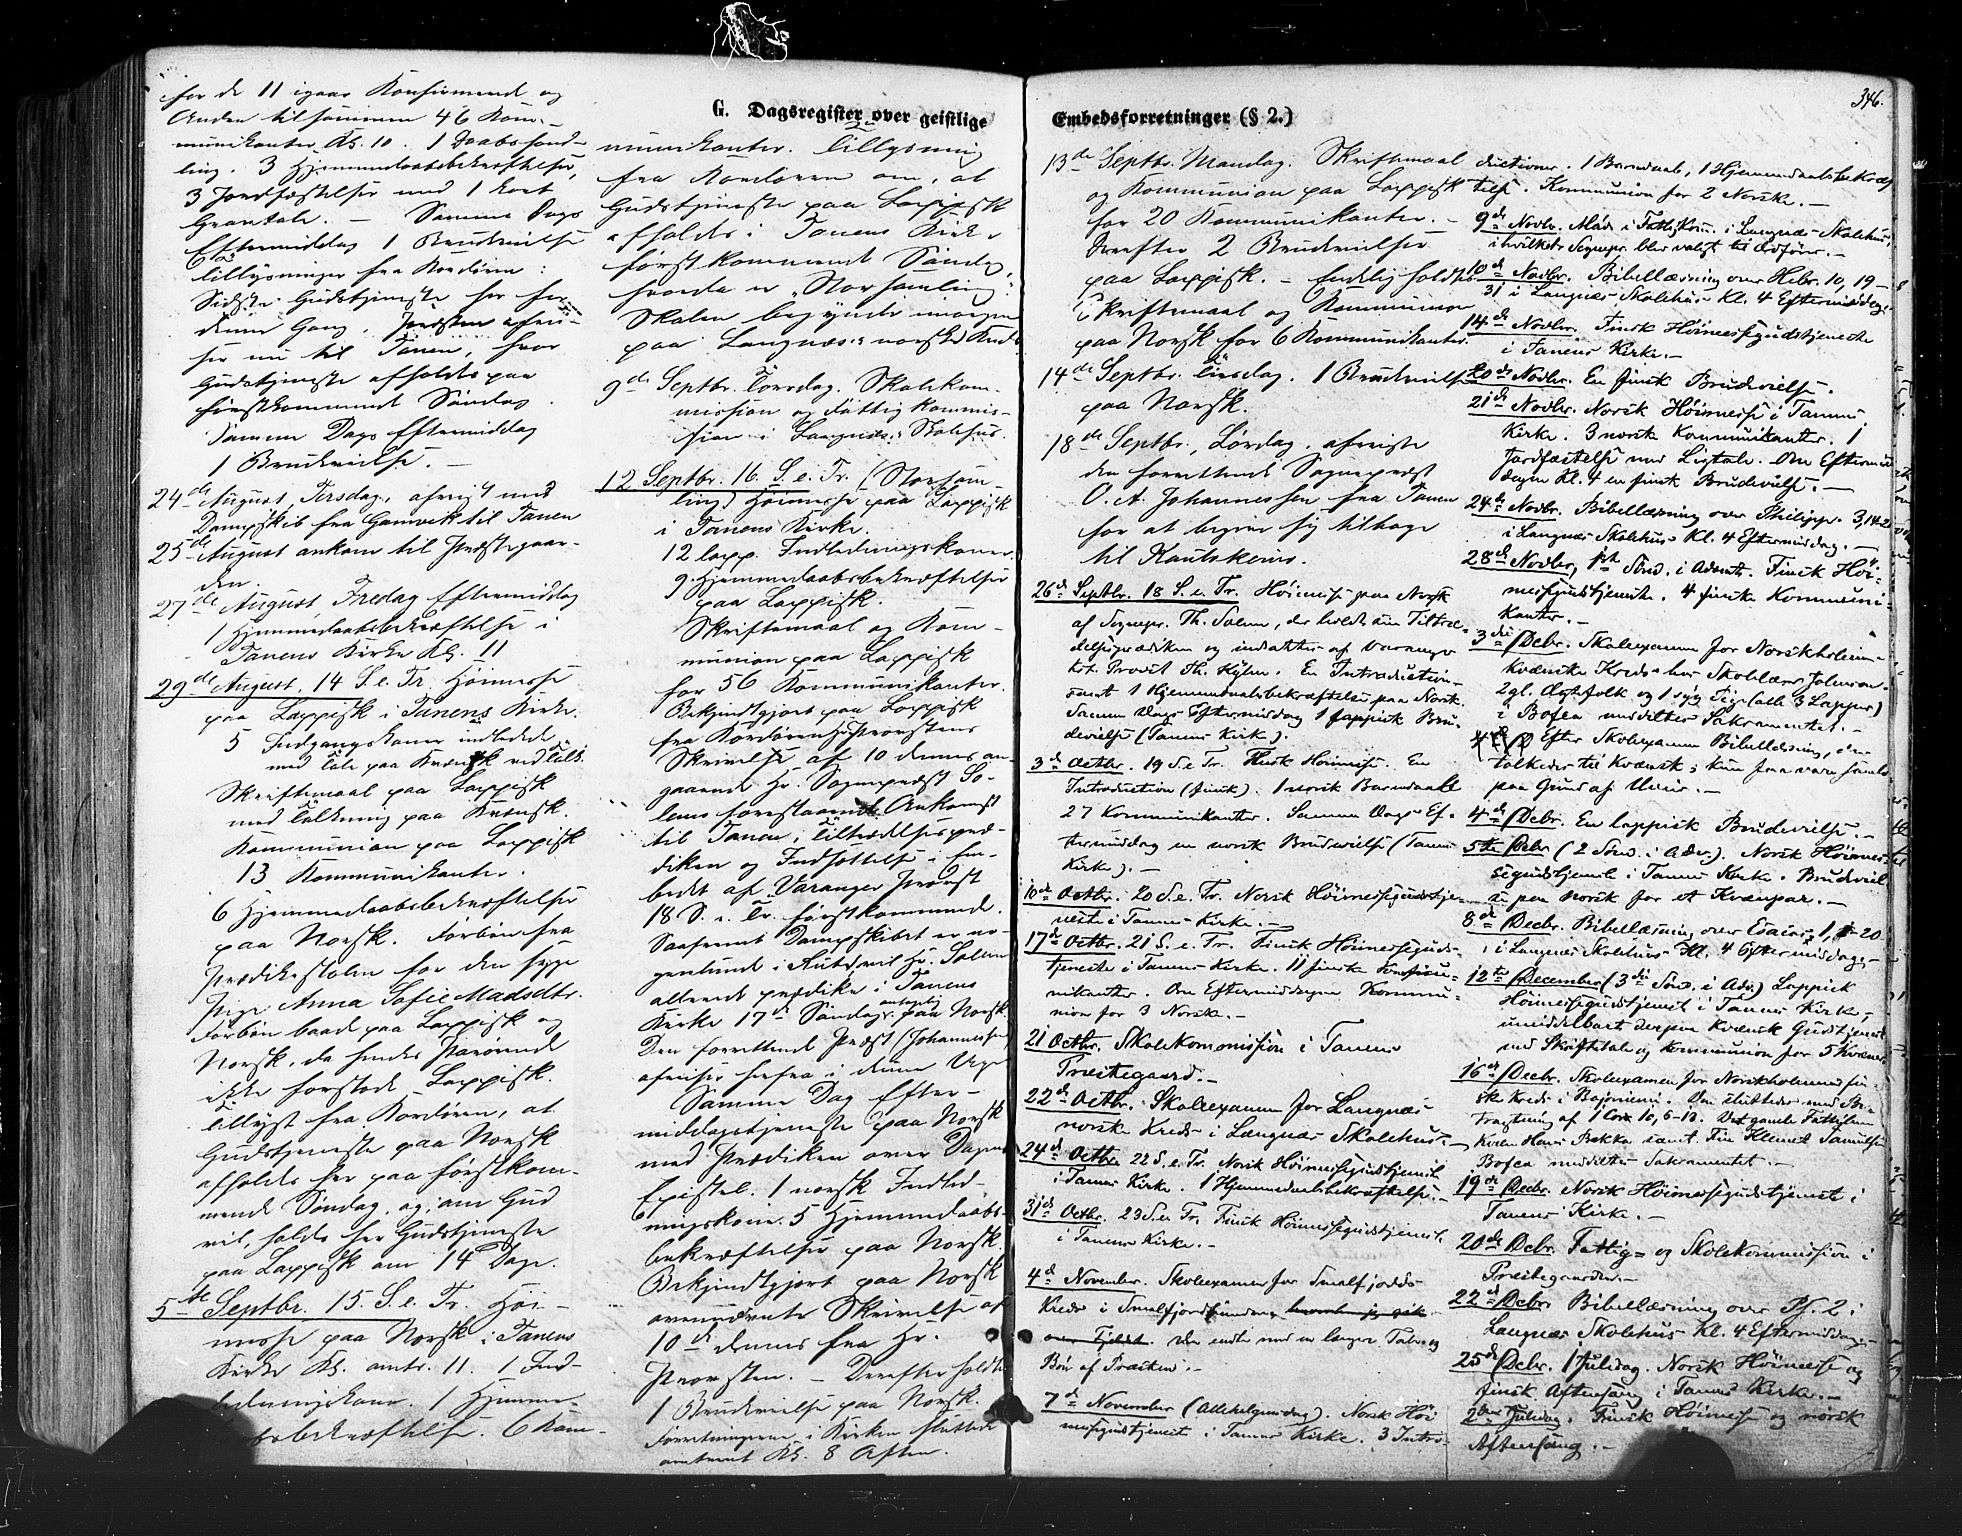 346.
G. Dagsregister over geistlige
Embedsforretninger (§ 2.)
for de 11 igaar Konfirmerede og
Anden tilsammen 46 Kom-
munikanter Kl. 10. 1 Daabshand-
ling. 3 Hjemmedaabsbekræftelser,
3 Jordfæstelser med 1 kort
Gravtale. – Samme Dags
Eftermiddag 1 Brudevielse
Tillysninger fra Kordøren:
Sidste Gudstjeneste her for
denne Gang. Præsten afrei-
ser nu til Tanen, hvor
Gudstjeneste afholdes paa
førstkommend Søndag.
Samme Dags Eftermiddag
1 Brudevielse. –
24de August, Tirsdag, afreist med
Dampskib fra Gamvik til Tanen
25de August ankom til Præstegaar-
den.
27de August, Fredag Eftermiddag
1 Hjemmedaabsbekræftelse i
Tanens Kirke Kl. 11
29de August. 14 S. e. Tr. Høimesse
paa Lappisk i Tanens Kirke.
5 Indgangskoner indledede
med Tale paa Kvænsk ved Tolk.
Skriftemaal paa Lappisk
med Tolkning paa Kvænsk.
Kommunion paa Lappisk
13 Kommunikanter.
6 Hjemmedaabsbekræftelser
paa Norsk. Forbøn fra
Prædikestolen for den syge
Pige Anna Sofie Madsdtr.
Forbøn baade paa Lappisk og
Norsk, da hendes Paarørende
ikke forstode Lappisk.
Tillyst fra Kordøren, at
Gudstjeneste paa Norsk
afholdes her paa førstkom-
mende Søndag, og, om Gud
vil, holdes her Gudstjeneste
paa Lappisk om 14 Dage.
5te Septbr. 15. S. e. Tr. Høi-
messe paa Norsk i Tanens
Kirke Kl. omtr. 11. 1 Ind-
ledningskone. 1 Hjemme-
daabsbekræftelse. 6 Kom-
munikanter. Tillysning
fra Kordøren om, at
Gudstjeneste paa Lappisk
afholdes i Tanens Kirke
førstkommende Søndag,
hvorda er „Storsamling“.
Skolen begynder imorgen
paa Langnæs: norske Kreds.
9de Septbr. Torsdag. Skolekom-
mission og Fattigkommis-
sion i Langnæs: Skolehus.
12 Septbr. 16. S. e. Tr. (Storsam-
ling) Høimesse paa Lappisk
i Tanens Kirke.
12 lapp. Indledningskoner.
9 Hjemmedaabsbekræftelser
paa Lappisk.
Skriftemaal og Kom-
munion paa Lappisk
for 56 Kommunikanter.
Bekjendtgjort paa Lappisk
fra Kordøren Hr. Provstens
Skrivelse af 10 dennes an-
gaaende Hr. Sogneprest So-
lems forestaaende Ankomst
til Tanen, Tiltrædelsespræ-
diken og Indsættelse i Em-
bedet af Varanger Provst
18 S. e. Tr. førstkommende.
Saafremt Dampskibet er no-
genlunde i Rute vil Hr. Solem
allerede prædike i Tanens
Kirke 17de Søndag antagelig paa Norsk.
Den forrettende Præst (Johannessen)
afreiser herfra i denne Uge
Samme Dag Efter-
middagstjeneste paa Norsk
med Prædiken over Dagens
Epistel. 1 norsk Indled-
ningskone. 5 Hjemmedaabs-
bekræftelser paa Norsk
Bekjendtgjort paa Norsk
ovennævnte Skrivelse af
10de dennes fra Hr.
Provsten. – Derefter holdtes
1 Brudevielse paa Norsk.
Forretningerne i Kirken sluttede
omtrent Kl. 8 Aften.
13de Septbr. Mandag. Skriftemaal
og Kommunion paa Lappisk
for 20 Kommunikanter. –
Derefter 2 Brudevielser
paa Lappisk. – Endelig holdtes
Skriftemaal og Kommunion
paa Norsk for 6 Kommunikanter.
14de Septbr. Tirsdag. 1 Brudevielse
paa Norsk.
18de Septbr., Lørdag, afreiste
den forrettende Sogneprest
O. A. Johannessen fra Tanen
for at begive sig tilbage
til Kautokeino.
26de Septbr. 18 S. e. Tr. Høimesse paa Norsk
af Sognepr. Th. Solem, der holdt sin Tiltræ-
delsesprædiken og indsattes af Varanger
kst. Provst Th. Kjelsen. En Introduction
samt 1 Hjemmedaabsbekræftelse paa Norsk.
Samme Dags Eftermiddag 1 lappisk Bru-
devielse (Tanens Kirke).
3de Octbr. 19 S. e. Tr. Finsk Høimesse. En
Introduction (finsk). 1 norsk Barnedaab
27 Kommunikanter. Samme Dags Ef-
termiddag en norsk Brudevielse (Tanens
Kirke). –
10de Octbr. 20 S. e. Tr. Norsk Høimessegudstje-
neste i Tanens Kirke. –
17de Octbr. 21 S. e. Tr. Finsk Høimessegud-
tjeneste i Tanens Kirke. 11 finske Kommu-
nikanter. Om Eftermiddagen Kommu-
nion for 3 Norske. –
21 Octbr. Skolekommission i Tanens
Præstegaard. –
22de Octbr. Skoleexamen for Langnæs
norsk Kreds i Langnæs Skolehus. –
24de Octbr. 22 S. e. Tr. Norsk Høimessegudstjeneste
i Tanens Kirke. 1 Hjemmedaabsbekræftelse. –
31de Octbr. 23 S. e. Tr. Finsk Høimessegudstjeneste
i Tanens Kirke. –
4de November. Skoleexamen for Smalfjords
Kreds i Smalfjordbunden, hvorfra jeg gik
over Fjeldet. Den endte med en længere Tale og
Bøn af Præsten. –
7de November (Allehelgensdag). Norsk Høi-
messegudstjeneste i Tanens Kirke. 3 Intro-
ductioner. 1 Barnedaab, 1 Hjemmedaabsbekræf-
telse. Kommunion for 2 Norske. –
9de Novbr. Møde i Fattigkom. i Langnæs Skolehus,
i hvilket Sognepr. blev valgt til Ordfører. –
10de Novbr. Bibellæsning over Hebr. 10, 19–
31 i Langnæs Skolehus Kl. 4 Eftermiddag.
14de Novbr. Finsk Høimessegudstjeneste
i Tanens Kirke. –
20de Novbr. En finsk Brudevielse.
21de Novbr. Norsk Høimesse i Tanens
Kirke. 3 norske Kommunikanter. 1
Jordfæstelse med Ligtale. Om Eftermid-
dagen Kl. 4 en finsk Brudevielse. –
24de Novbr. Bibellæsning over Philipp. 3, 14–21
i Langnæs Skolehus Kl. 4 Eftermiddag. –
28de Novbr. 1ste Sønd. i Advent. Finsk Høi-
messegudstjeneste. 4 finske Kommuni-
kanter. –
3die Decbr. Skoleexamen for Norskholmen-
kvænske Kreds hos Skolelærer Johnsen.
2 gl. Ægtefolk og 1 syg Pige (alle 3 Lapper)
i Bofea meddeltes Sakramentet. –
Efter Skoleexamen Bibellæsning, der
tolkedes til Kvænsk; kun faa vare samlede
paa Grund af Veiret. –
4de Decbr. En lappisk Brudevielse. –
5te Decbr. (2 Sønd. i Adv.). Norsk Høimes-
segudstjeneste i Tanens Kirke. Brudeviel-
se paa Norsk for et Kvænpar. –
8de Decbr. Bibellæsning over Esaias 1, 1–20
i Langnæs Skolehus Kl. 4 Eftermiddag.
12te December (3die Sønd. i Adv.) Lappisk
Høimessegudstjeneste i Tanens Kirke,
umiddelbart derpaa kvænsk Gudstjeneste
med Skriftetale og Kommunion for 5 Kvæner.
16de Decbr. Skoleexamen for Norskholmens fin-
ske Kreds i Bajoniemi. Den sluttedes med Be-
tragtning af 1 Cor. 10, 6–12. Det gamle Fattiglem
Hans Bakka samt Fin Klemet Samuelsen
Bofea meddeltes Sakramentet. –
19de Decbr. Norsk Høimessegudstjeneste i
Tanens Kirke. –
20de Decbr. Fattig- og Skolekommission i
Præstegaarden. –
22de Decbr. Bibellæsning over Ps. 2 i
Langnæs Skolehus Kl. 4 Eftermiddag.
25de Decbr. 1 Juledag. Norsk Høimesse og
finsk Aftensang i Tanens Kirke. –
2den Juledag. Finsk Høimesse og norsk
Aftensang. –